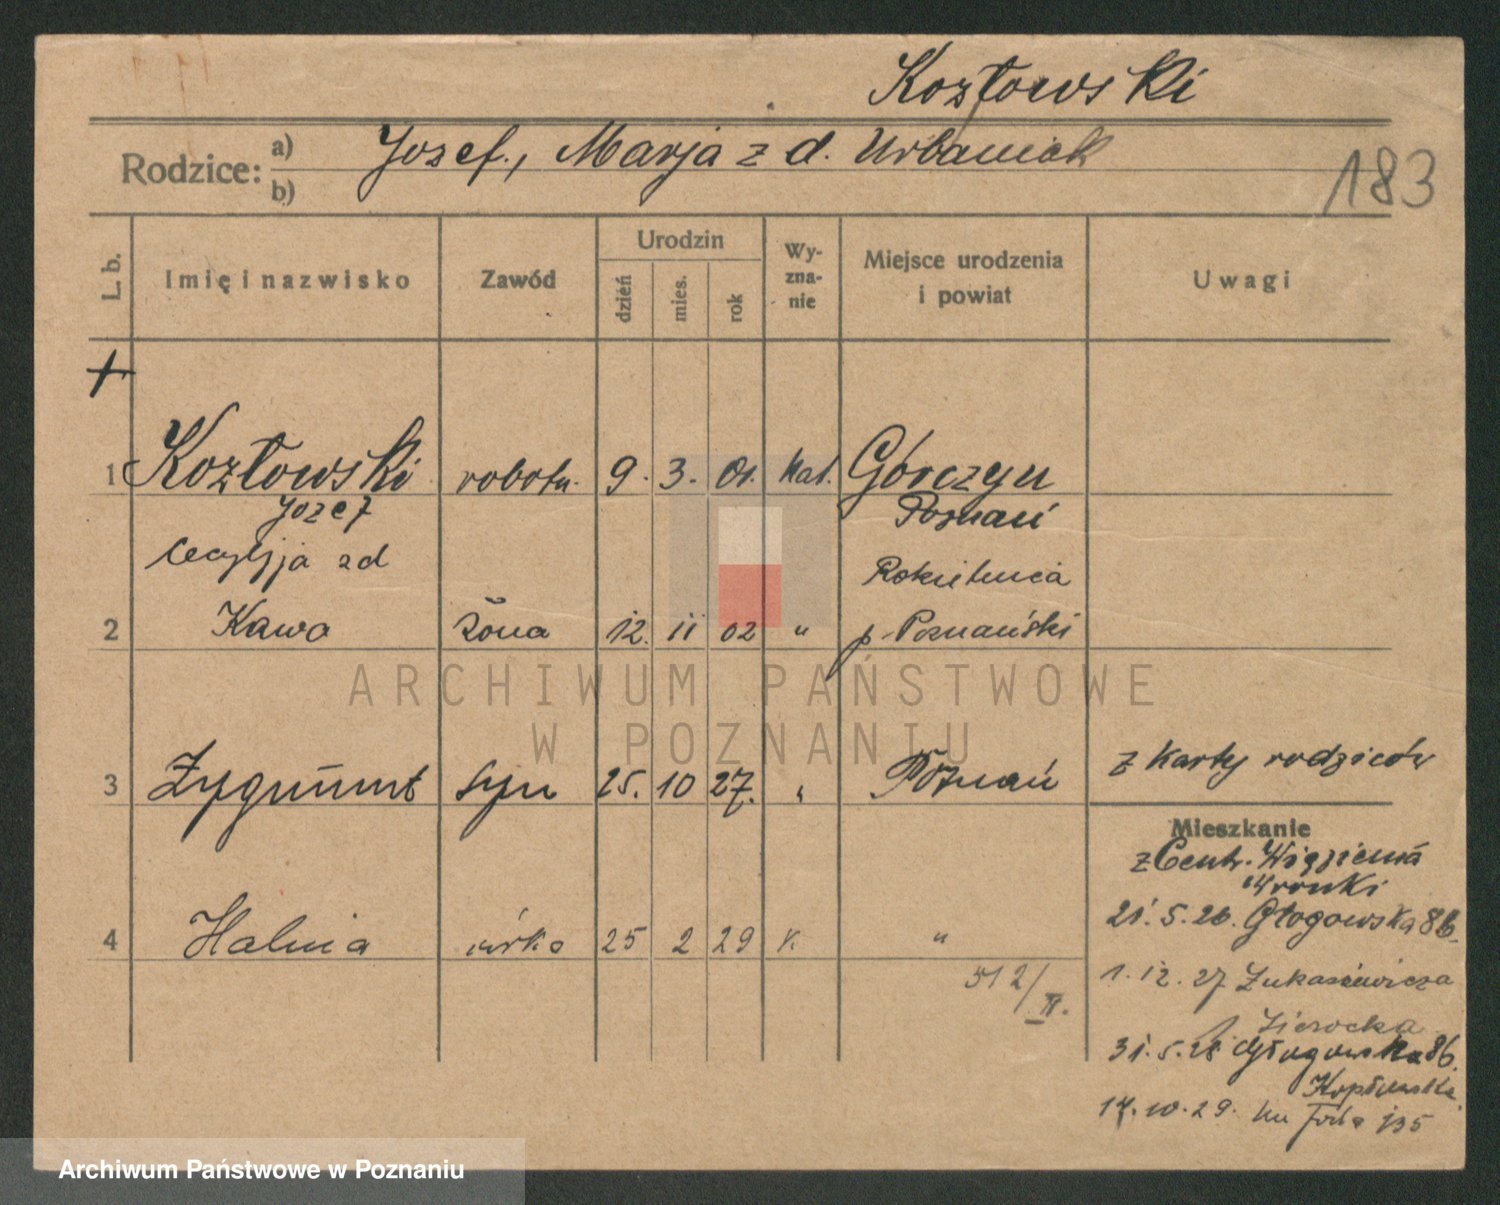 Kozłowski
Rodzice: a) Jozef., Marja z d. Urbaniak
b)
183
L. b. Imię i nazwisko Zawód Urodzin dzień mies. rok Wy-zna-nie Miejsce urodzenia i powiat Uwagi
1 Kozłowski robotn. 9. 3. 01. kat. Górczyn
Jozef Poznań
Cecylja zd Rokietnica
2 Kawa żona 12. 11 02 " p. Poznański
3 Zygmunt syn 25. 10 27. " Poznań z karty rodziców
Mieszkanie
z Centr. Więzienia
Wronki
21. 5. 26. Głogowska 86.
4 Halina córka 25 2 29 k. "
512/II.
1. 12. 27 Łukasiewicza
31. 5. 28 Głogowska 86.
17. 10. 29.
ARCHIWUM PAŃSTWOWE
W POZNANIU
Archiwum Państwowe w Poznaniu